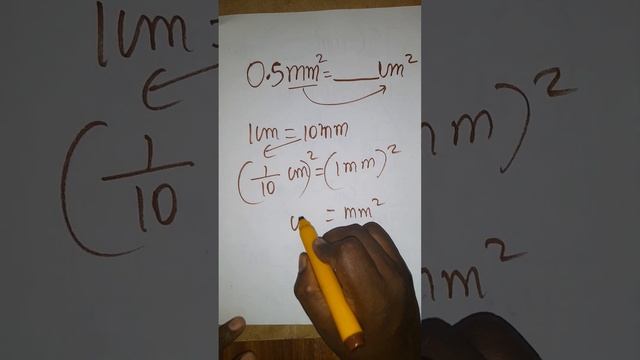 0.5mm² = ____ cm²
1cm = 10mm
(1/10 cm)² = (1mm)²
c = mm²